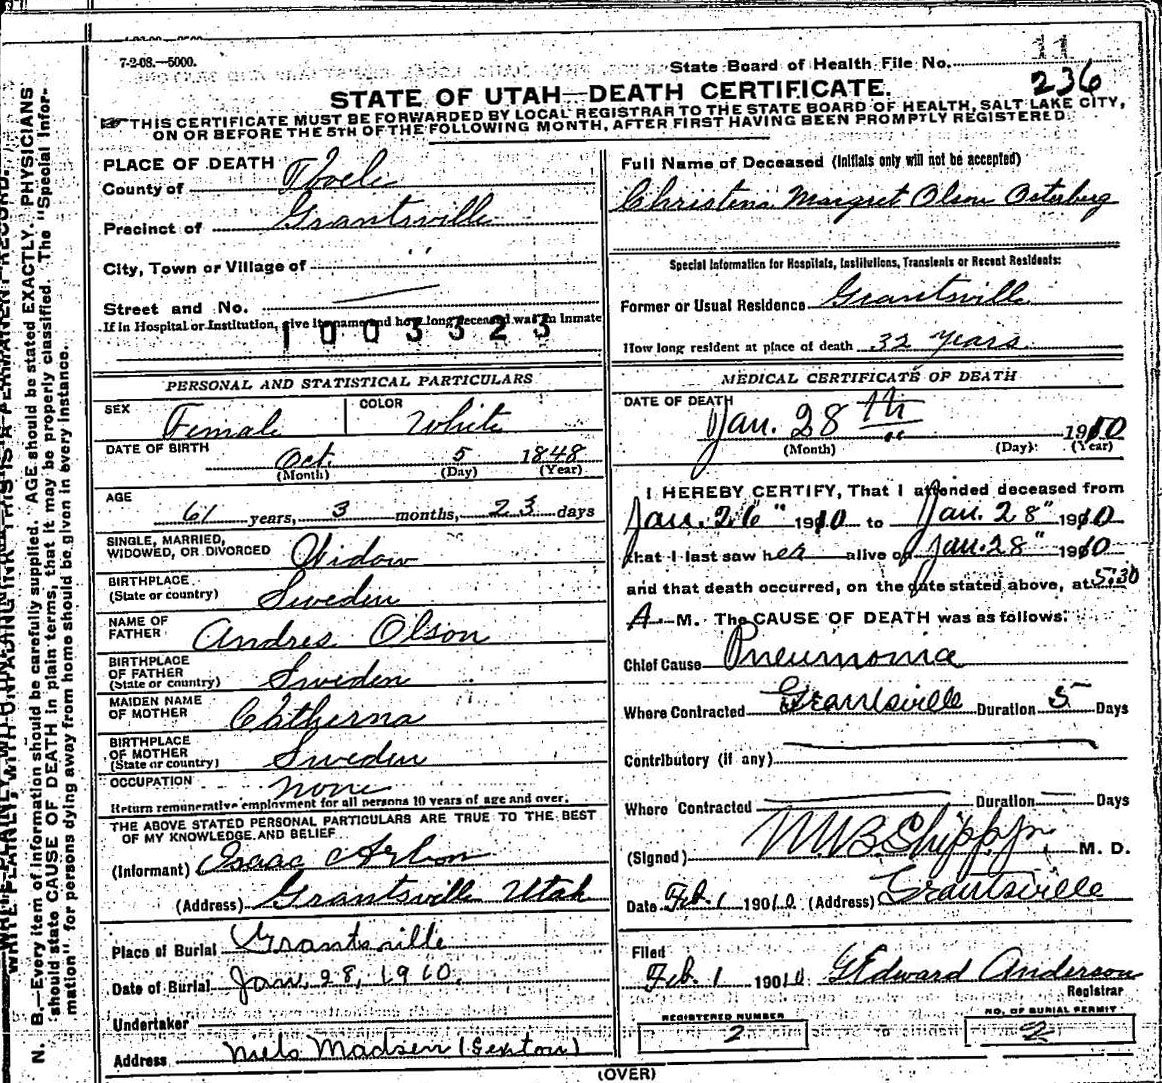 11
7-2-08.—5000.
State Board of Health File No.
236
STATE OF UTAH—DEATH CERTIFICATE.
☞ THIS CERTIFICATE MUST BE FORWARDED BY LOCAL REGISTRAR TO THE STATE BOARD OF HEALTH, SALT LAKE CITY,
ON OR BEFORE THE 5TH OF THE FOLLOWING MONTH, AFTER FIRST HAVING BEEN PROMPTLY REGISTERED.
PLACE OF DEATH
County of Tooele
Precinct of Grantsville
City, Town or Village of "
Street and No.
If in Hospital or Institution, give its name and how long deceased was an Inmate
1003323
PERSONAL AND STATISTICAL PARTICULARS
SEX Female COLOR White
DATE OF BIRTH Oct. 5 1848
(Month) (Day) (Year)
AGE
61 years, 3 months, 23 days
SINGLE, MARRIED,
WIDOWED, OR DIVORCED Widow
BIRTHPLACE
(State or country) Sweden
NAME OF
FATHER Andres Olson
BIRTHPLACE
OF FATHER
(State or country) Sweden
MAIDEN NAME
OF MOTHER Chtherna
BIRTHPLACE
OF MOTHER
(State or country) Sweden
OCCUPATION none
Return remunerative employment for all persons 10 years of age and over.
THE ABOVE STATED PERSONAL PARTICULARS ARE TRUE TO THE BEST
OF MY KNOWLEDGE AND BELIEF
(Informant) Isaac Arbon
(Address) Grantsville Utah
Place of Burial Grantsville
Date of Burial Jan. 28, 1910.
Undertaker
Address Niels Madsen (Sexton)
Full Name of Deceased (Initials only will not be accepted)
Christena Margret Olson Osterberg
Special Information for Hospitals, Institutions, Transients or Recent Residents:
Former or Usual Residence Grantsville
How long resident at place of death 32 years
MEDICAL CERTIFICATE OF DEATH
DATE OF DEATH
Jan. 28th 1910
(Month) (Day) (Year)
I HEREBY CERTIFY, That I attended deceased from
Jan. 26" 1910 to Jan. 28" 1910
that I last saw her alive on Jan. 28" 1910
and that death occurred, on the date stated above, at 5:30
A. M. The CAUSE OF DEATH was as follows:
Chief Cause Pneumonia
Where Contracted Grantsville Duration 5 Days
Contributory (if any)
Where Contracted Duration Days
(Signed) M. D.
Date Feb. 1 1910 (Address) Grantsville
Filed
Feb. 1 1910 G. Edward Anderson
Registrar
REGISTERED NUMBER
2
NO. OF BURIAL PERMIT
2
(OVER)
N. B.—Every item of information should be carefully supplied. AGE should be stated EXACTLY. PHYSICIANS
should state CAUSE OF DEATH in plain terms, that it may be properly classified. The "Special Infor-
mation" for persons dying away from home should be given in every instance.